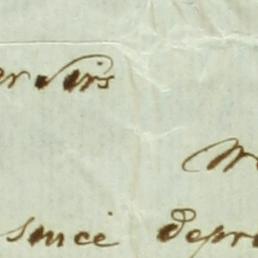 er Sirs
We
since depr